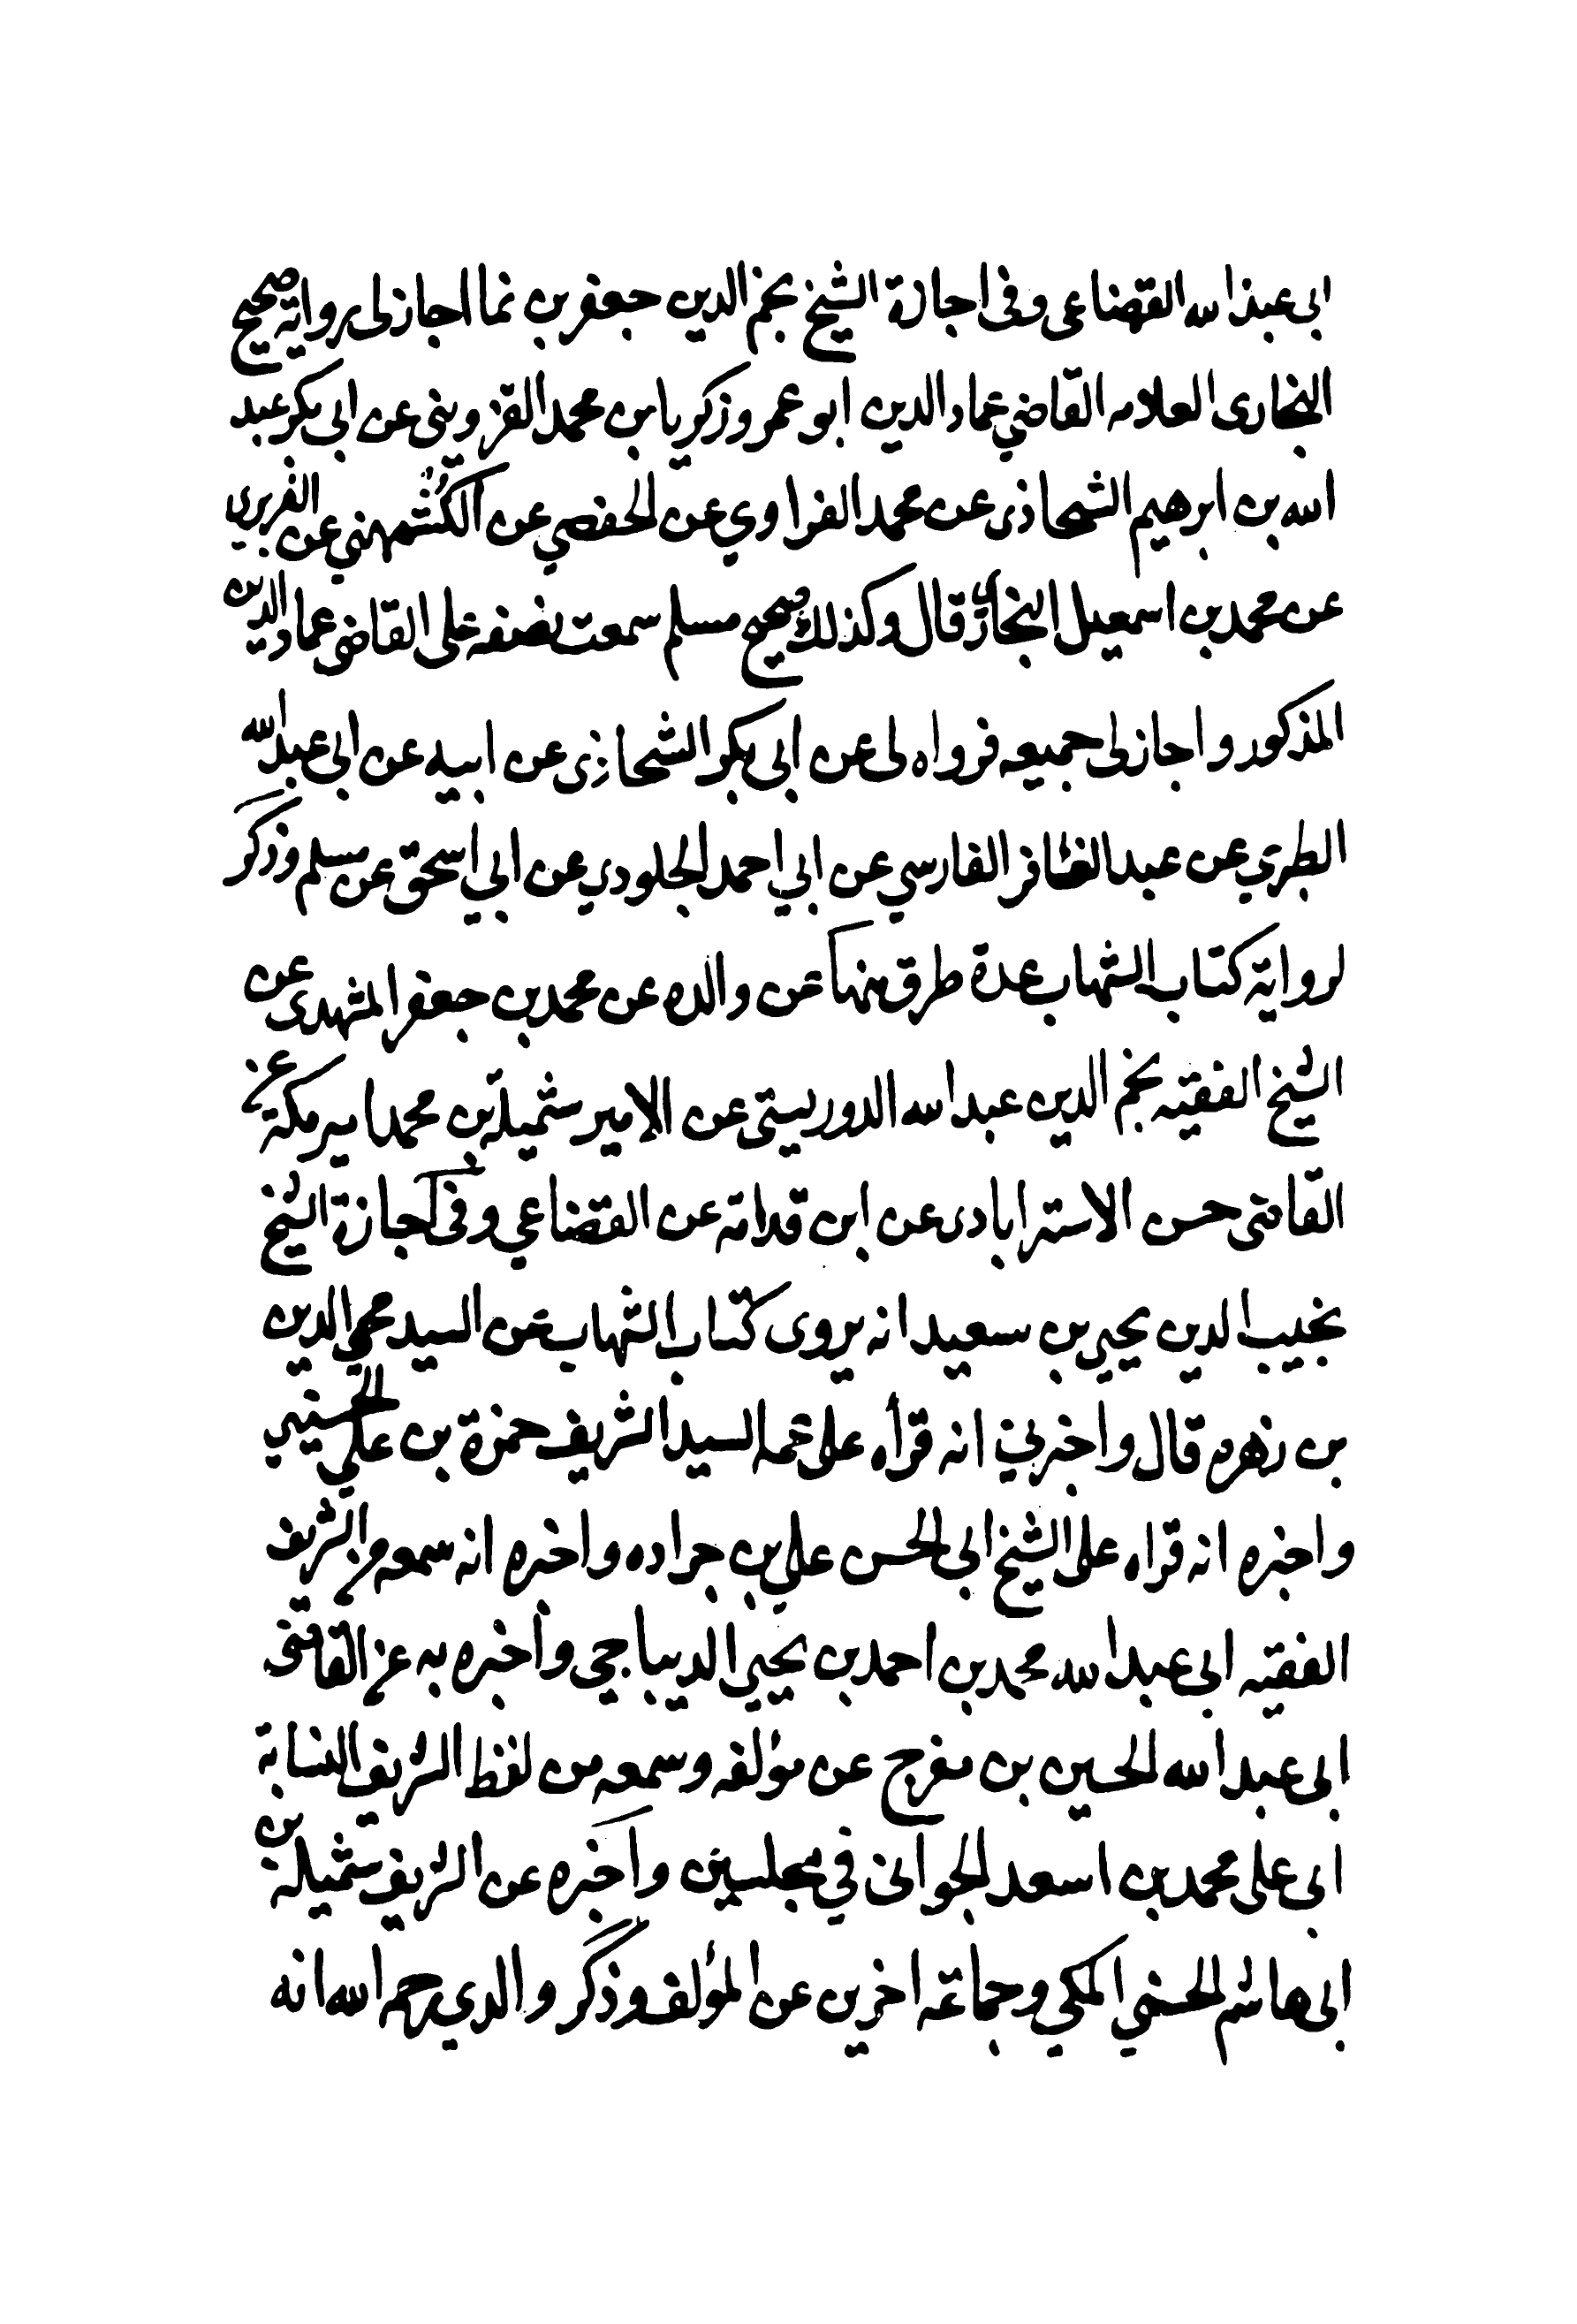 ابى عبد الله القضاعى وفى اجازة الشيخ نجم الدين جعفر بن نما اجاز لى رواية صحيح
البخارى العلامه القاضي عماد الدين ابو عمرو زكريا بن محمد القزوينى عن ابى بكر عبد
الله بن ابرهيم الشحاذى عن محمد الفراوي عن الحفصي عن الكُشمهني عن الفربرى
عن محمد بن اسمعيل البخارى قال وكذلك صحيح مسلم سمعت نصفه على القاضى عماد الدين
المذكور واجاز لى جميعه فرواه لى عن ابى بكر الشحاذى عن ابيه عن ابى عبد الله
الطبري عن عبد الغافر الفارسي عن ابي احمد الجلودي عن ابي اسحق عن مسلم وذكر
لرواية كتاب الشهاب عدة طرق منها عن والده عن محمد بن جعفر المشهدى عن
الشيخ الفقيه نجم الدين عبد الله الدوريستى عن الامير شميلة بن محمد امير مكة عن
القاضى حسن الاسترابادى عن ابن قدامة عن القضاعي وفى اجازة الشيخ
نجيب الدين يحيى بن سعيد انه يروى كتاب الشهاب عن السيد محيي الدين
بن زهره قال واخبرني انه قرأه على عمه السيد الشريف حمزة بن علي الحسيني
واخبره انه قراه على الشيخ ابى الحسن علي بن جراده واخبره انه سمعه من الشريف
الفقيه ابى عبد الله محمد بن احمد بن يحيى الديباجي وأخبره به عن القاضى
ابى عبد الله الحسين بن مفرج عن مؤلفه وسمعه من لفظ الشريف النسابة
ابى على محمد بن اسعد الجوانى في مجلسين وأخبره عن الشريف شميلة بن
ابى هاشم الحسني المكي وجماعة اخرين عن المؤلف وذكر والدي رحمه الله انه